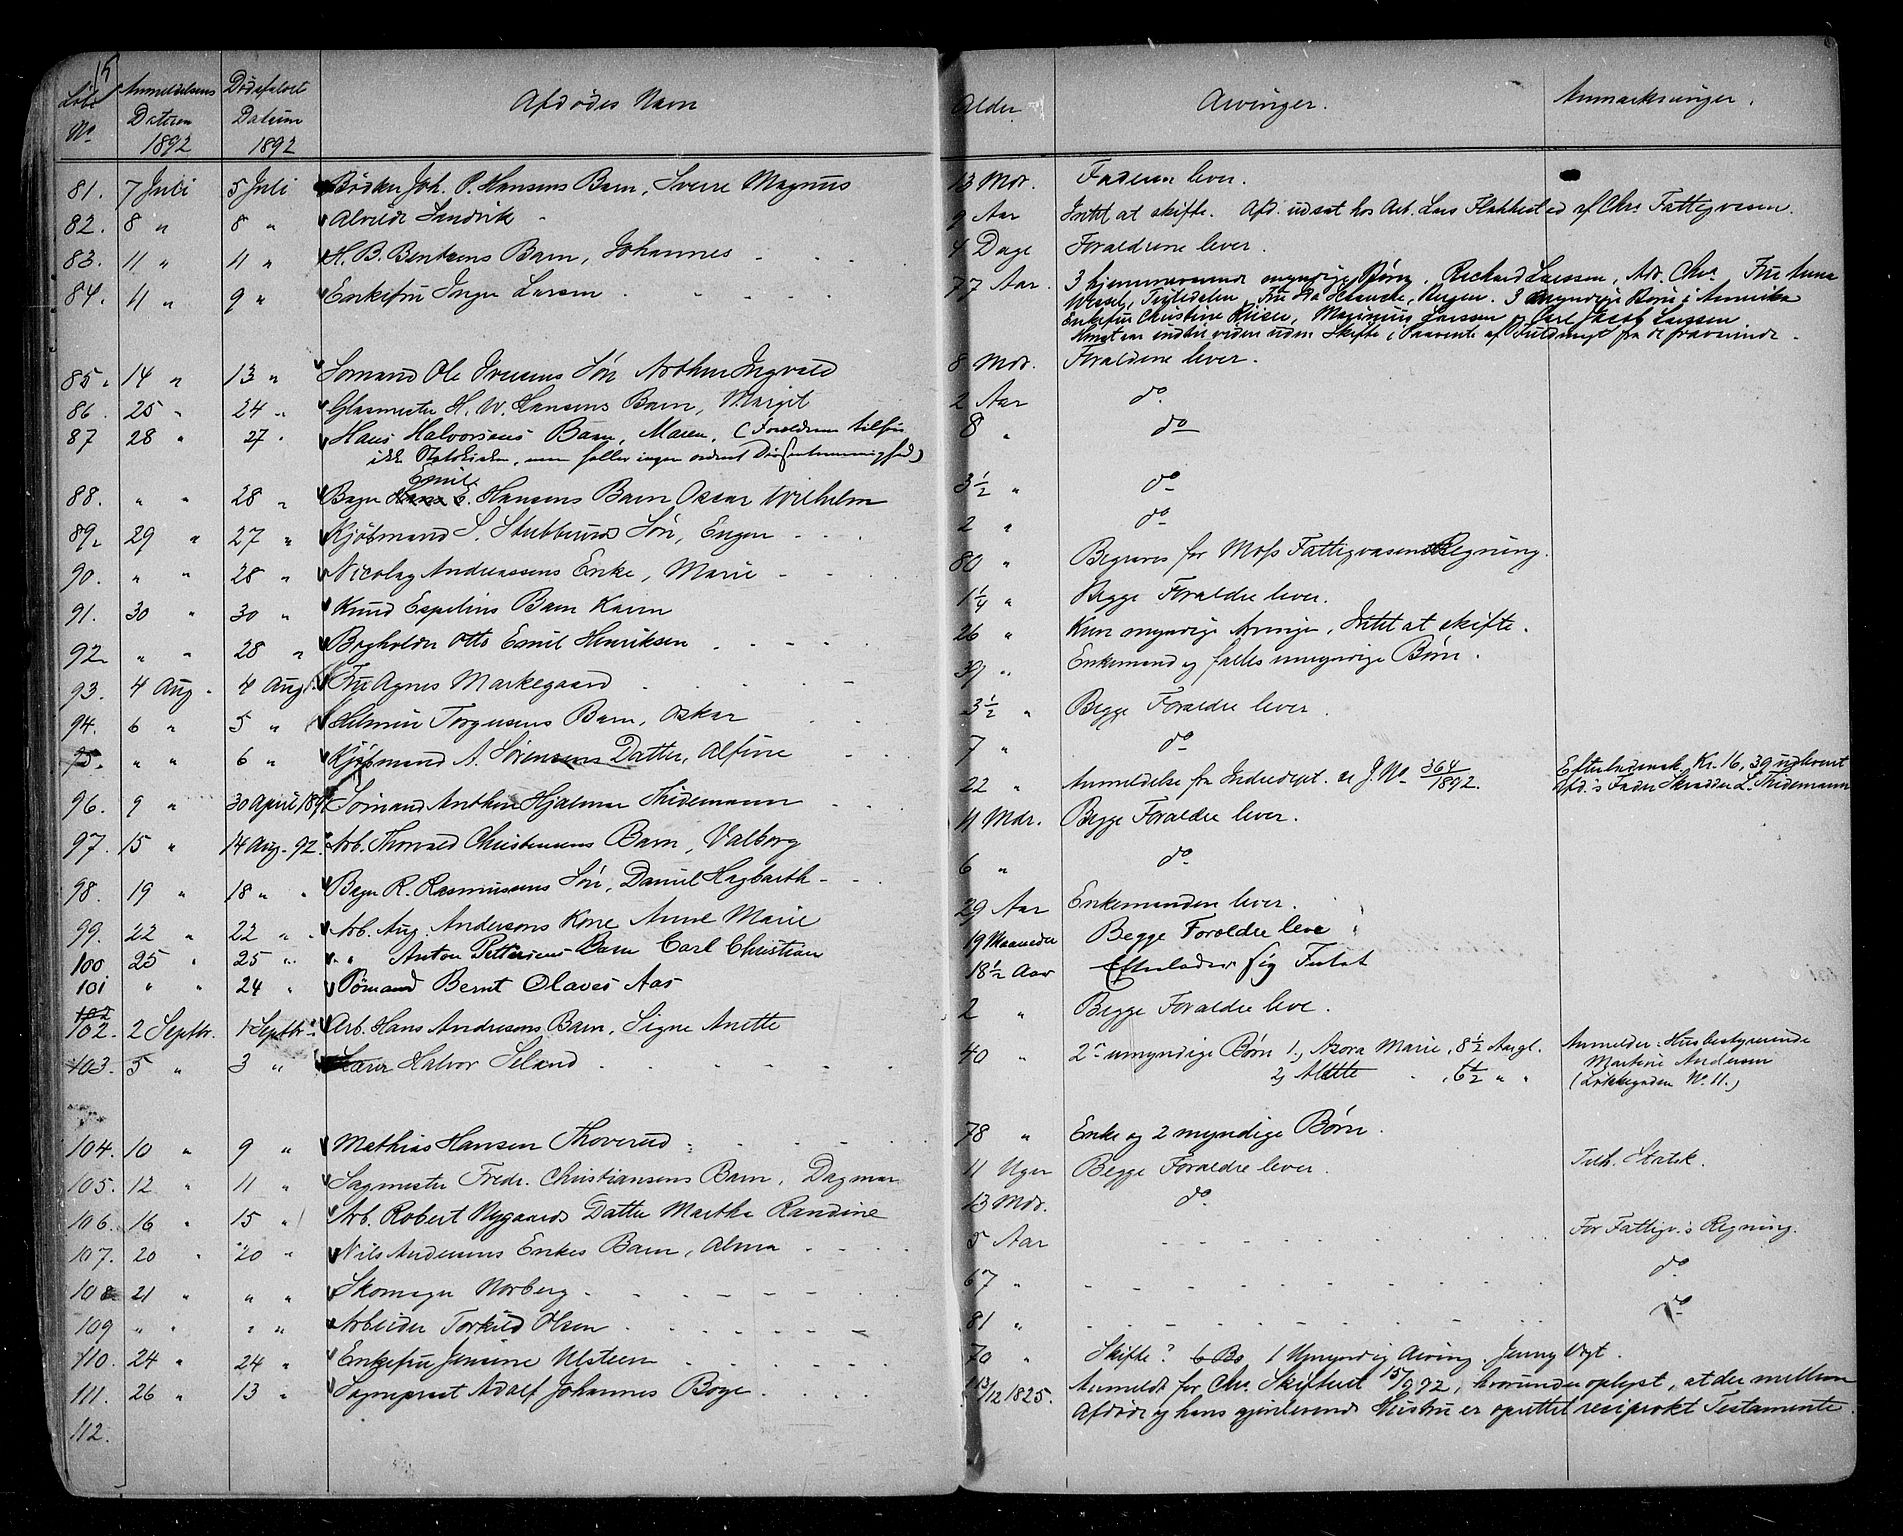 15
Løbe No. Anmeldelsens Datum 1892 Dødsfaldets Datum 1892 Afdødes Navn Alder Arvinger. Anmærkninger.
81. 7 Juli 5 Juli Bødker Joh. P. Hansens Barn, Sverre Magnus 13 Mdr. Faderen lever.
82. 8 " 8 " Alvilde Sandvik 9 Aar Intet at skifte. Afd. udsat hos Arb. Lars Flakkestad af Chra Fattigvæsen.
83. 11 " 11 " H. B. Bentzens Barn, Johannes 4 Dage Forældrene lever.
84. 11 " 9 " Enkefru Inger Larsen 77 Aar. 3 hjemmeværende myndige Børn, Richard Larssen, Adr. Chra, Fru Anna
Wessel, Teglidalen, Fru Ida Hencke, Rügen. 3 myndige Børn i Amerika
Enkefru Christine Riise, Magnus Larssen og Carl Jacob Larssen
indtil videre uden Skifte i Paavente af Fuldmagt fra de fraværende.
85. 14 " 13 " Sømand Ole Iversens Søn Arthur Ingvald 8 Mdr. Forældrene lever.
86. 25 " 24 " Glasmester H. W. Hansens Barn, Margit 2 Aar do
87 28 " 27 " Hans Halvorsens Barn, Maren, (Forældrene tilhører 8 " do
ikke Statskirken, men heller ingen ordnet Dissentermenighed)
88. " " 28 " Bager Hans E. Emil Hansens Barn Oscar Wilhelm 3½ " do
89. 29 " 27 " Kjøbmand S. Stubberuds Søn, Eugen 2 " do
90. " " 28 " Nicolay Andreassens Enke, Marie 80 " Begraves for Moss Fattigvæsens Regning.
91. 30 " 30 " Knud Espelins Barn Karen 1¼ " Begge Forældre lever.
92. " " 28 " Bogholder Otto Emil Henriksen 26 " Kun myndige Arvinger, Intet at skifte.
93. 4 Aug. 4 Aug. Fru Agnes Markegaard 39 " Enkemand og fælles umyndige Børn.
94. 6 " 5 " Hilmer Torgersens Barn, Oskar 3½ " Begge Forældre lever.
95. " " 6 " Kjøbmand A. Sørensens Datter, Alfine 7 " do
96. 9 " 30 April 189 Sømand Anthon Hjalmar Thidemann 22 " Anmeldelse fra Indredept. se J. No. 364/1892. Efterladensk. Kr. 16,39 udleveret
Afd.s Fader Skrædder L. Thidemann
97. 15 " 14 Aug. 92. Arb. Thorvald Christensens Barn, Valborg 11 Mdr. Begge Forældre lever.
98. 19 " 18 " " Bager R. Rasmussens Søn, Daniel Hagbarth 6 " do
99. 22 " 22 " Arb. Aug. Andersens Kone Anne Marie 29 Aar Enkemanden lever.
100 25 " 25 " " Anton Pettersens Barn Carl Christian 19 Maaneder Begge Forældre leve
101 " " 24 " Sømand Bernt Olaves Aas 18½ Aar Efterlader sig Intet
102. 2 Septbr. 1 Septbr. Arb. Hans Andersens Barn, Signe Anette 2 " Begge Forældre leve.
103. 5 " 3 " Lærer Halvor Seland 40 " 2 umyndige Børn 1, Azora Marie, 8½ Aar gl. Anmelder: Husbestyrerinde
2, Alette 6½ " " Martine Andersen
(Løkkegaden No. 11.)
104. 10 " 9 " Mathias Hansen Thoverud 78 " Enke og 2 myndige Børn.
105. 12 " 11 " Sagmester Fredr. Christiansens Barn, Dagmar 11 Uger Begge Forældre lever. Tilh. Statsk.
106. 16 " 15 " Arb. Robert Nygaards Datter Martha Randine 13 Mdr. do
107. 20 " 20 " Nils Andersens Enkes Barn, Alma 5 Aar For Fattigv.s Regning.
108 21 " " " Skomager Norberg 67 " do
109 " " " " Arbeider Torkild Olsen 81 " do
110. 24 " 24 " Enkefru Jensine Ulsteen 70 " Skifte? 6 Bo 1 Umyndig Arving Jenny Vogt.
111. 26 " 13 " Sogneprest Adolf Johannes Boye 13/12 1825. Anmeldt for Chr. Skifteret 15/9 92, hvorunder oplyst, at der mellem
Afdøde og hans gjenlevende Hustru er oprettet resiprokt Testamente.
112.